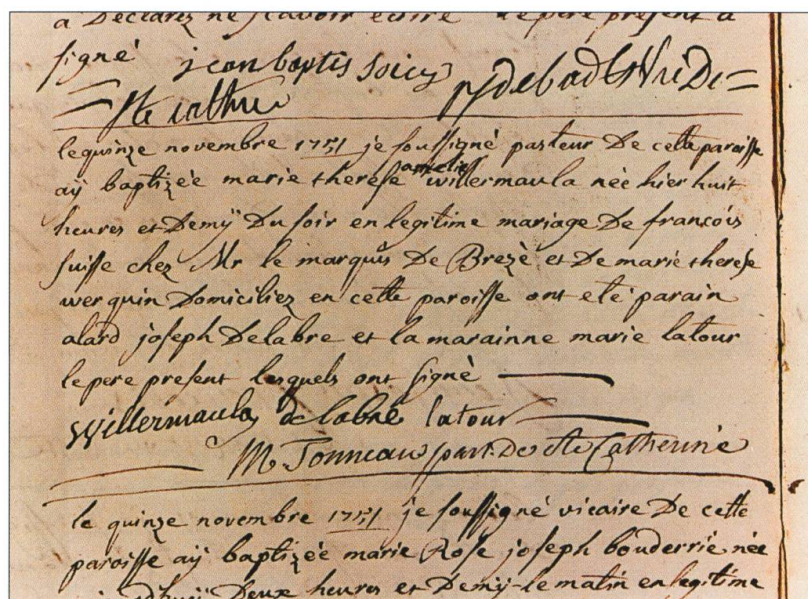 a Declarez ne scavoir ecrire le pere present a
signé jean baptis soicy
Ste cathe
le quinze novembre 1751 je soussigné pasteur De cette paroisse
aÿ baptizée marie therese amelie willermaula née hier huit
heures et Demÿ Du soir en legitime mariage De francois
suisse chez Mr le marquis De Brezè et De marie therese
werquin Domiciliez en cette paroisse ont eté parain
alard joseph Delabre et la marainne marie latour
le pere present lesquels ont signé
Willermaula delabre latour
M Tonneau past. De Ste Catherine
le quinze novembre 1751 je soussigné vicaire De cette
paroisse aÿ baptizée marie Rose joseph bouderrié née
Deux heures et Demÿ le matin en legitime